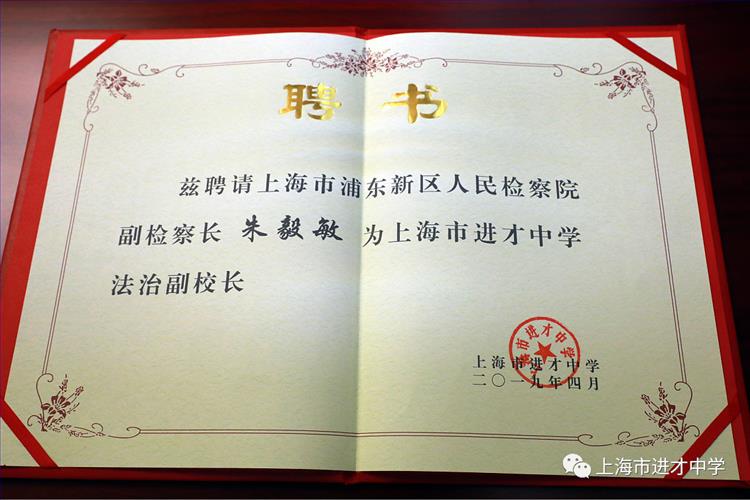 聘书
兹聘请上海市浦东新区人民检察院
副检察长 朱毅敏 为上海市进才中学
法治副校长
上海市进才中学
上海市进才中学
二〇一九年四月
上海市进才中学